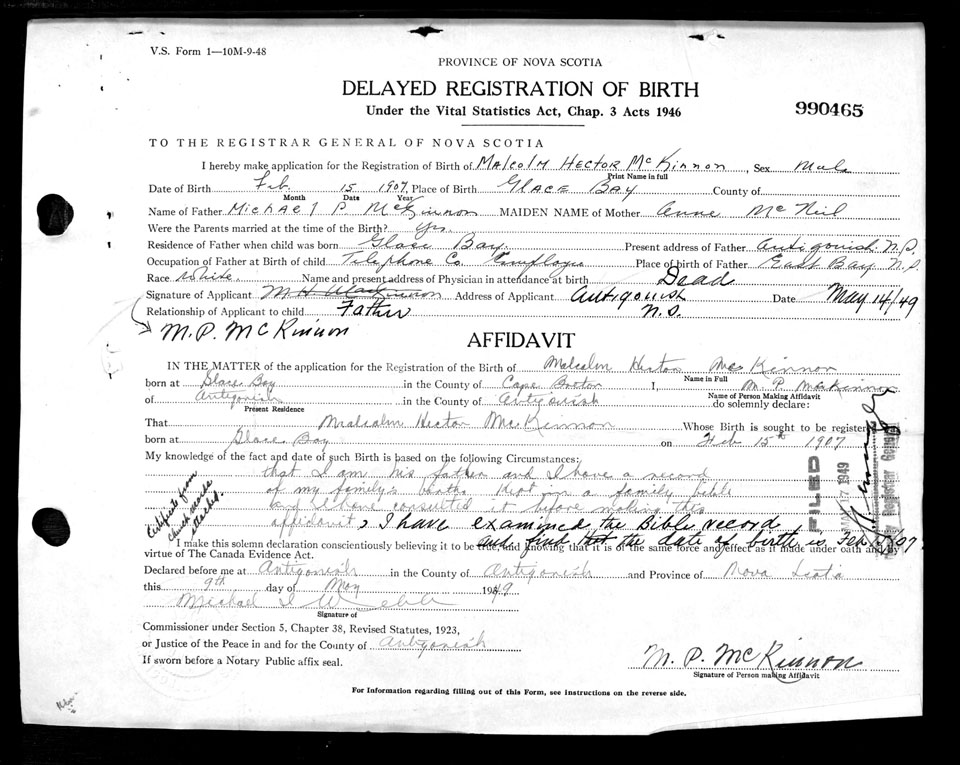 V.S. Form 1—10M-9-48
PROVINCE OF NOVA SCOTIA
DELAYED REGISTRATION OF BIRTH
Under the Vital Statistics Act, Chap. 3 Acts 1946
990465
TO THE REGISTRAR GENERAL OF NOVA SCOTIA
I hereby make application for the Registration of Birth of Malcolm Hector McKinnon, Sex Male
Print Name in full
Date of Birth Feb 15 1907, Place of Birth Glace Bay County of
Month Date Year
Name of Father Michael P. McKinnon MAIDEN NAME of Mother Anne McNeil
Were the Parents married at the time of the Birth? Yes.
Residence of Father when child was born Glace Bay. Present address of Father Antigonish. N.S.
Occupation of Father at Birth of child Telephone Co. Employee Place of birth of Father East Bay N.S.
Race White. Name and present address of Physician in attendance at birth Dead
Signature of Applicant M H MacKinnon Address of Applicant Antigonish Date May 14/49
Relationship of Applicant to child Father N.S.
M. P. McKinnon
AFFIDAVIT
IN THE MATTER of the application for the Registration of the Birth of Malcolm Hector McKinnon
Name in Full
born at Glace Bay in the County of Cape Breton I, M. P. McKinnon
Name of Person Making Affidavit
of Antigonish in the County of Antigonish do solemnly declare:
Present Residence
That Malcolm Hector McKinnon Whose Birth is sought to be register
born at Glace Bay on Feb 15th 1907
My knowledge of the fact and date of such Birth is based on the following Circumstances:
that I am his father and I have a record
of my family's births kept in a family bible
and I have consulted it before making this
affidavit, I have examined the Bible record
and find that the date of birth is Feb 15/07.
Certificate from
church marks
attached.
I make this solemn declaration conscientiously believing it to be true, and knowing that it is of the same force and effect as if made under oath and by
virtue of The Canada Evidence Act.
Declared before me at Antigonish in the County of Antigonish and Province of Nova Scotia
this 9th day of May 1949
Michael Webb
Signature of
Commissioner under Section 5, Chapter 38, Revised Statutes, 1923,
or Justice of the Peace in and for the County of Antigonish
If sworn before a Notary Public affix seal.
M. P. McKinnon
Signature of Person making Affidavit
For Information regarding filling out of this Form, see instructions on the reverse side.
FILED
17 1949
Deputy Registrar General